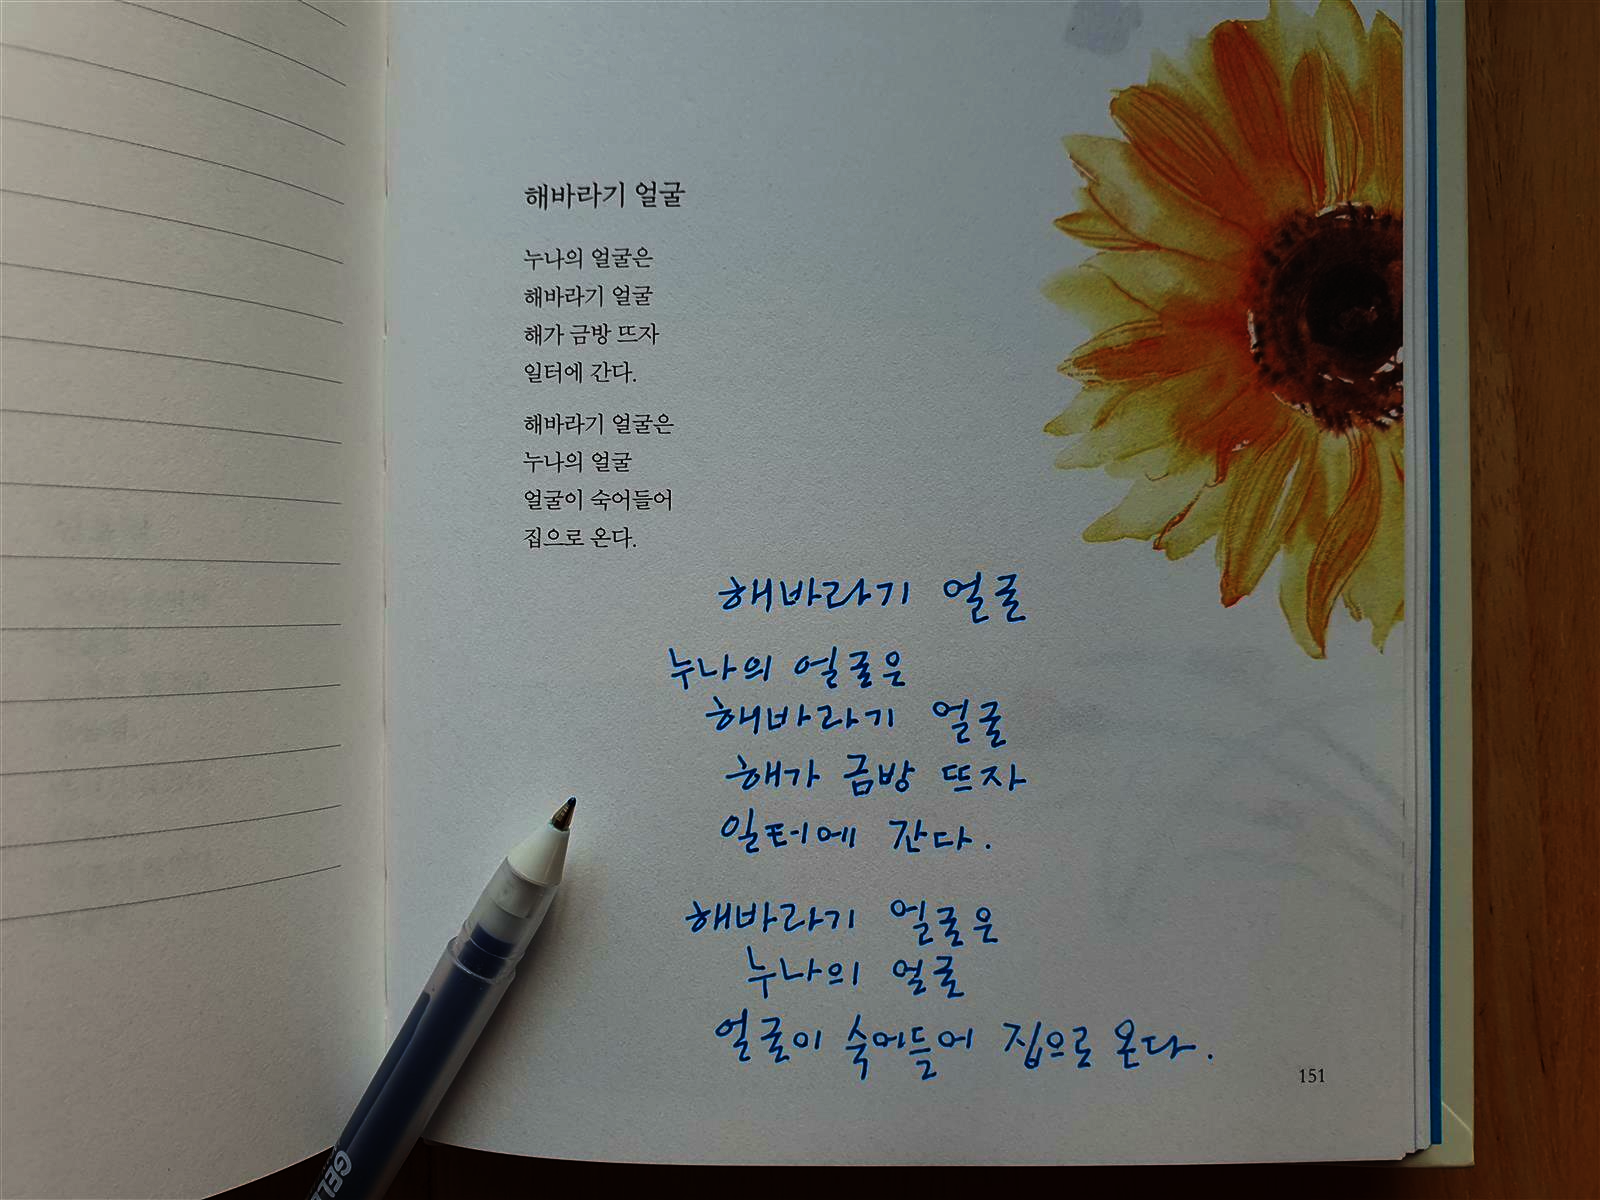 해바라기 얼굴
누나의 얼굴은
해바라기 얼굴
해가 금방 뜨자
일터에 간다.
해바라기 얼굴은
누나의 얼굴
얼굴이 숙어들어
집으로 온다.
해바라기 얼굴
누나의 얼굴은
해바라기 얼굴
해가 금방 뜨자
일터에 간다.
해바라기 얼굴은
누나의 얼굴
얼굴이 숙어들어 집으로 온다.
151